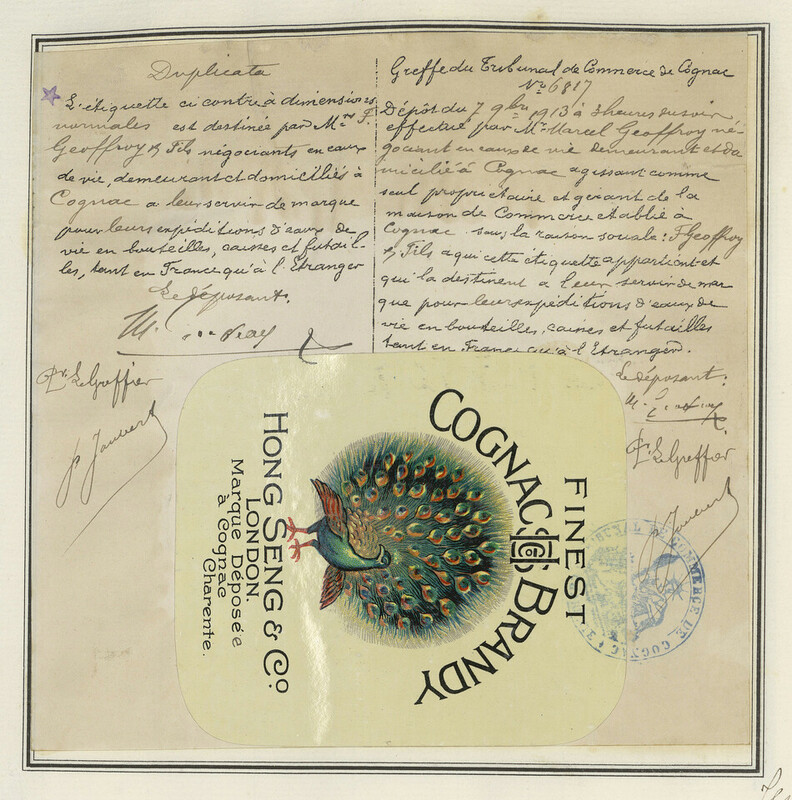 Duplicata
L'étiquette ci contre à dimensions
normales est destinée par Mrs F.
Geoffroy & Fils négociants en eaux
de vie, demeurant et domiciliés à
Cognac a leur servir de marque
pour leurs expéditions d'eaux de
vie en bouteilles, caisses et futail-
les, tant en France qu'à l'Etranger
Le déposant.
Pr. Le Greffier
P. Jaubert
Greffe du Tribunal de Commerce de Cognac
No 6817
Dépôt du 7 9bre 1913 à 3 heures du soir,
effectué par Mr Marcel Geoffroy né-
gociant en eaux de vie demeurant et do
micilié à Cognac agissant comme
seul propriétaire et gérant de la
maison de Commerce etablie à
Cognac sous la raison sociale: F Geoffroy
& Fils a qui cette étiquette appartient et
qui la destinent a leur servir de mar
que pour leurs expéditions d'eaux de
vie en bouteilles, caisses et futailles
tant en France qu'à l'Etranger.
Le déposant:
Pr. Le Greffier
P. Jaubert
FINEST
COGNAC BRANDY
HONG SENG & Co
LONDON.
Marque Déposée
à Cognac
Charente.
TRIBUNAL DE COMMERCE DE COGNAC